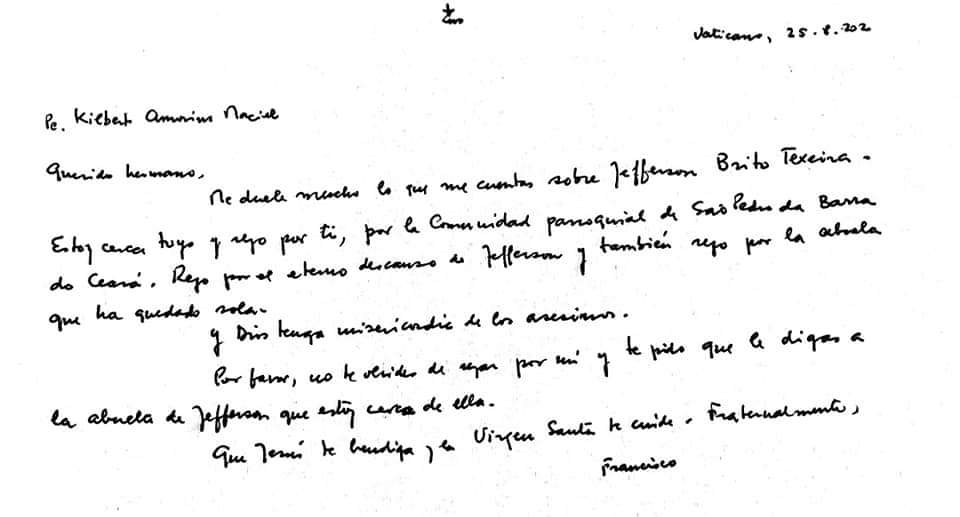 Vaticano, 25.8.202
Pe. Kilbert Amorim Maciel
Querido hermano,
Me duele mucho lo que me cuentas sobre Jefferson Brito Texeira.
Estoy cerca tuyo y rezo por ti, por la Comunidad parroquial de São Pedro da Barra
do Ceará. Rezo por el eterno descanso de Jefferson y también rezo por la abuela
que ha quedado sola.
Y Dios tenga misericordia de los asesinos.
Por favor, no te olvides de rezar por mí y te pido que le digas a
la abuela de Jefferson que estoy cerca de ella.
Que Jesús te bendiga y la Virgen Santa te cuide. Fraternalmente,
Francisco